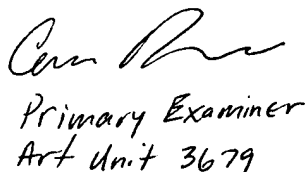 Primary Examiner
Art Unit 3679